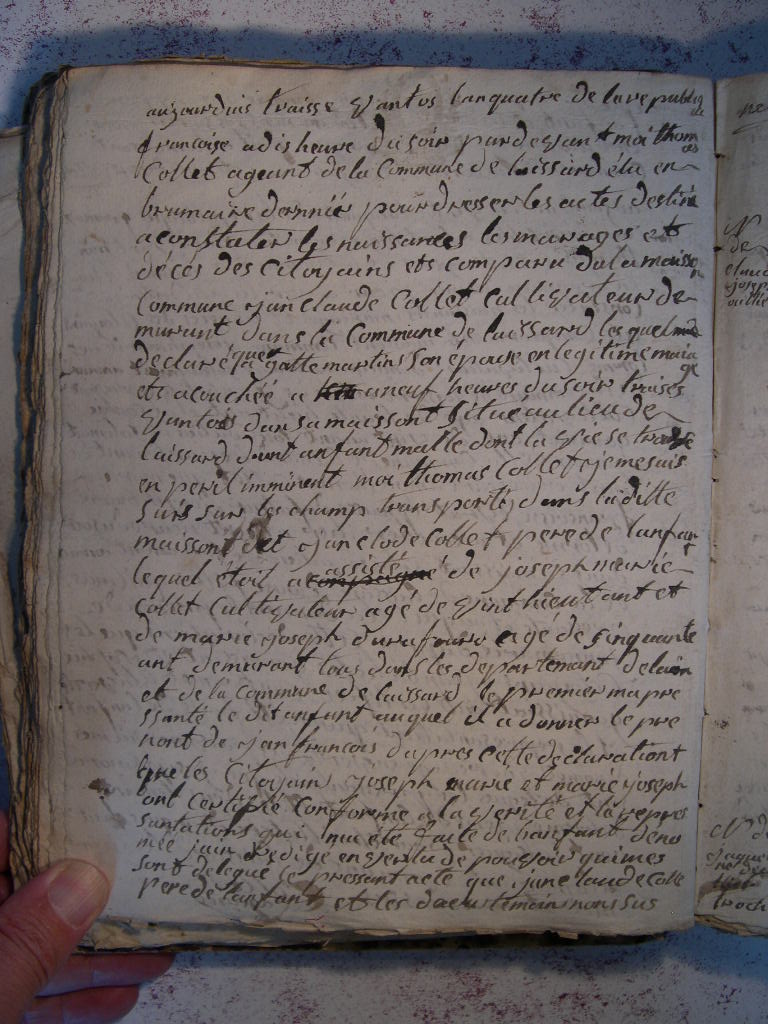 aujourduis traisse vantos lanquatre de la republique
francoise a dis heure du soir par devant moi thomas
Collet ageant de la Commune de laissard élu en
brumaire dernnié pour dresser les actes destiné
a constater les naissances les mariages et
décés des Citoyains ets comparu dala maisson
Commune jan claude Collet Cultivateur de
murant dans la Commune de laissard lequel
declaré que martins son épouse en legitime
ets acouchéé a aneuf heures du soir traises
vantos dans sa maissont situé au lieu de
laissard dunt anfant malle dont la vie se trouve
en peril imminent moi thomas Collet je me suis
surs sur les champ transporté dans la ditte
maissont det jan clode Collet pere de lanfan
lequel étoit assisté de joseph marie
Collet Cultivateur agé de vint hieut ant et
de marie joseph agé de sinquante
ant demurant tous dans les departemant de lain
et de la Commune de laissard le premier ma pre
ssanté le dit anfant auquel il a donner le pre
nont de jan francois dapres cette declarationt
que les Citoyain joseph marie et marie joseph
ont certifié Conforme a la verité et la repres
santations qui ma été faite de lanfant deno
mée jai redige en vertu de pouvoir qui mes
sont delegué le pressant acte que jane laude Colle
pere de lanfant et les daeus temoin nons sus
ne
N
de
claud
joseph
N de
jaque